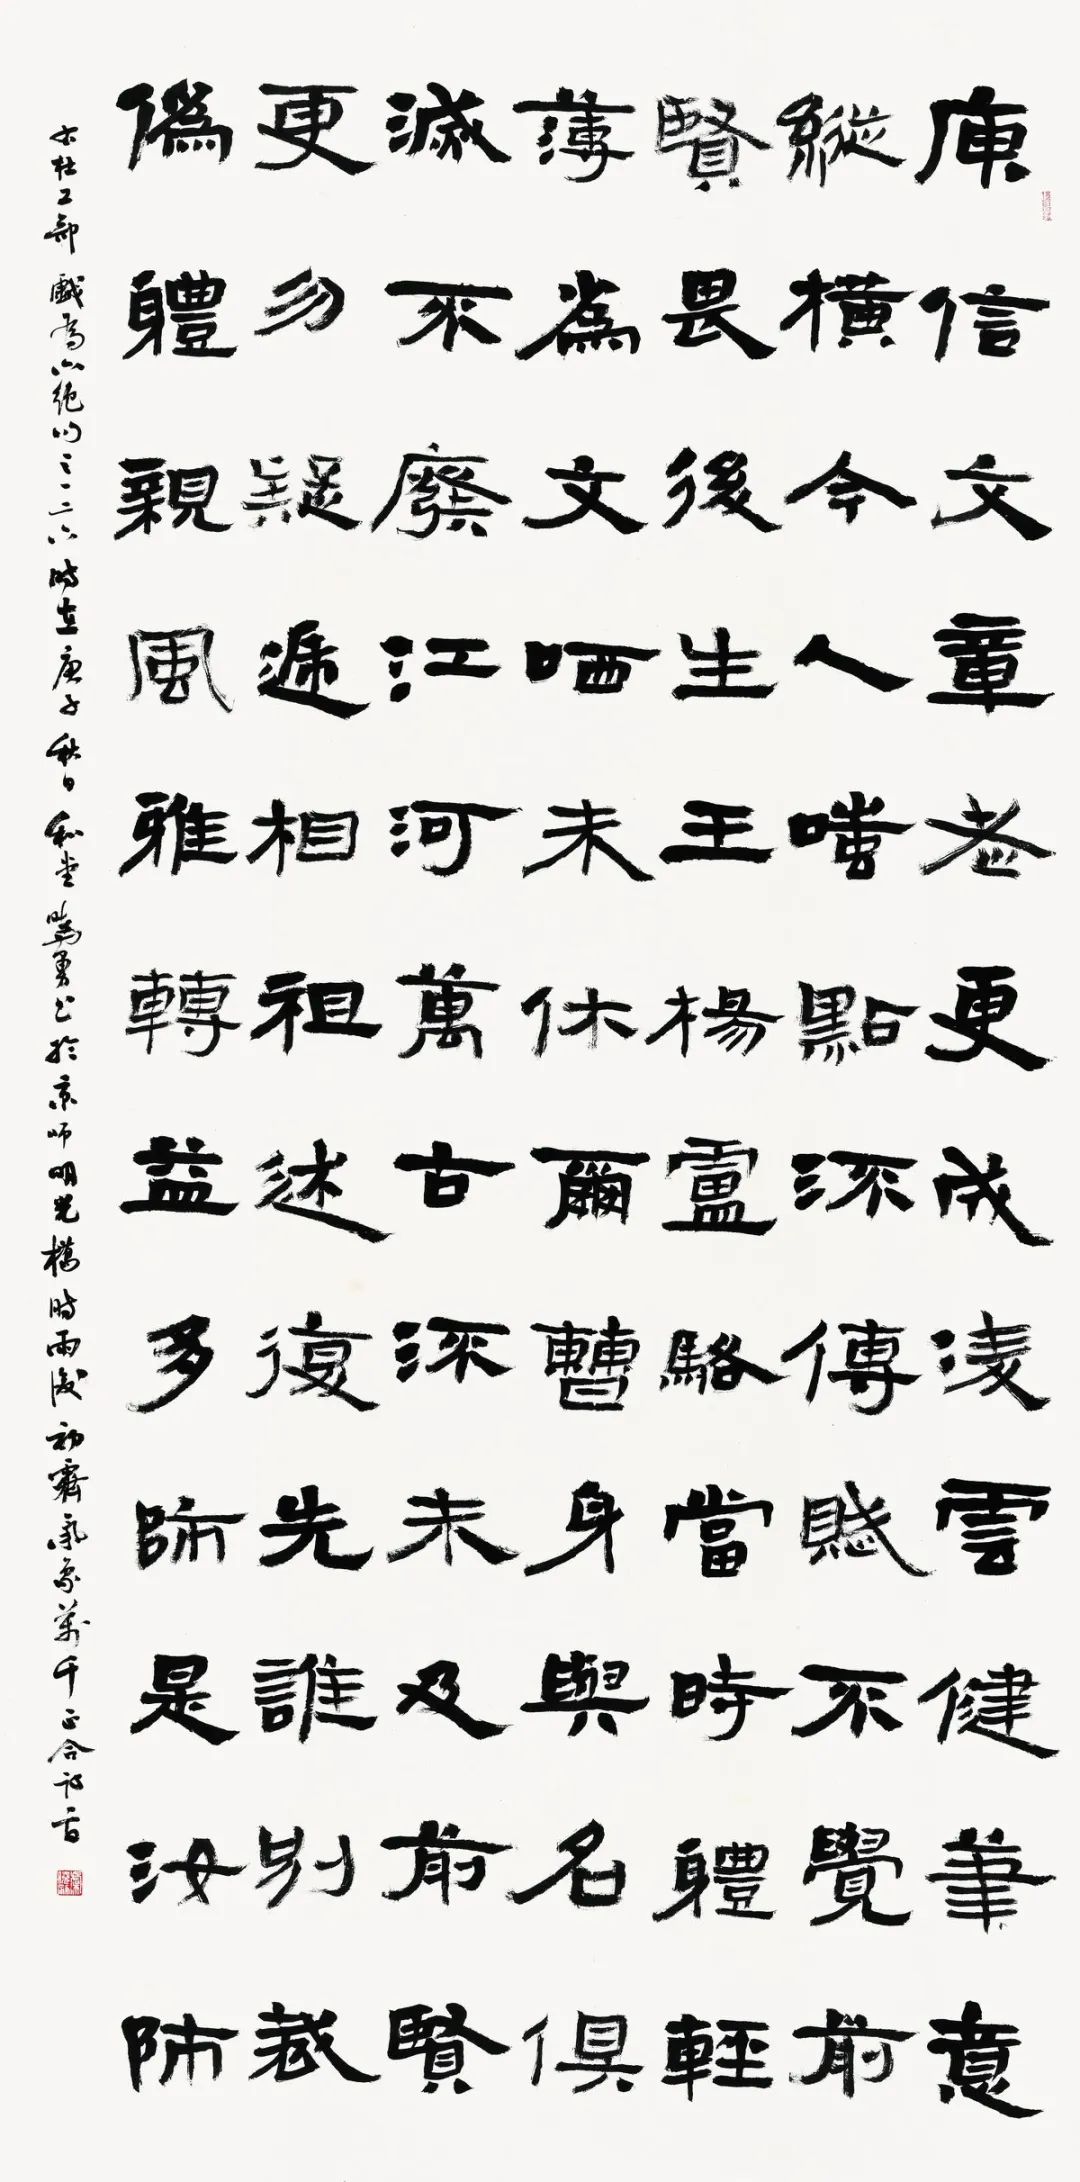 庾信文章老更成淩雲健筆意
縱橫今人嗤點流傳賦不覺前
賢畏後生王楊盧駱當時體輕
薄為文哂未休爾曹身與名俱
滅不廢江河萬古流未及前賢
更勿疑遞相祖述復先誰別裁
偽體親風雅轉益多師是汝師
杜工部戲為六絕句之一二六時在庚子秋日和堂驍勇書於京師明光橋時雨後初霽氣象萬千正合詩旨